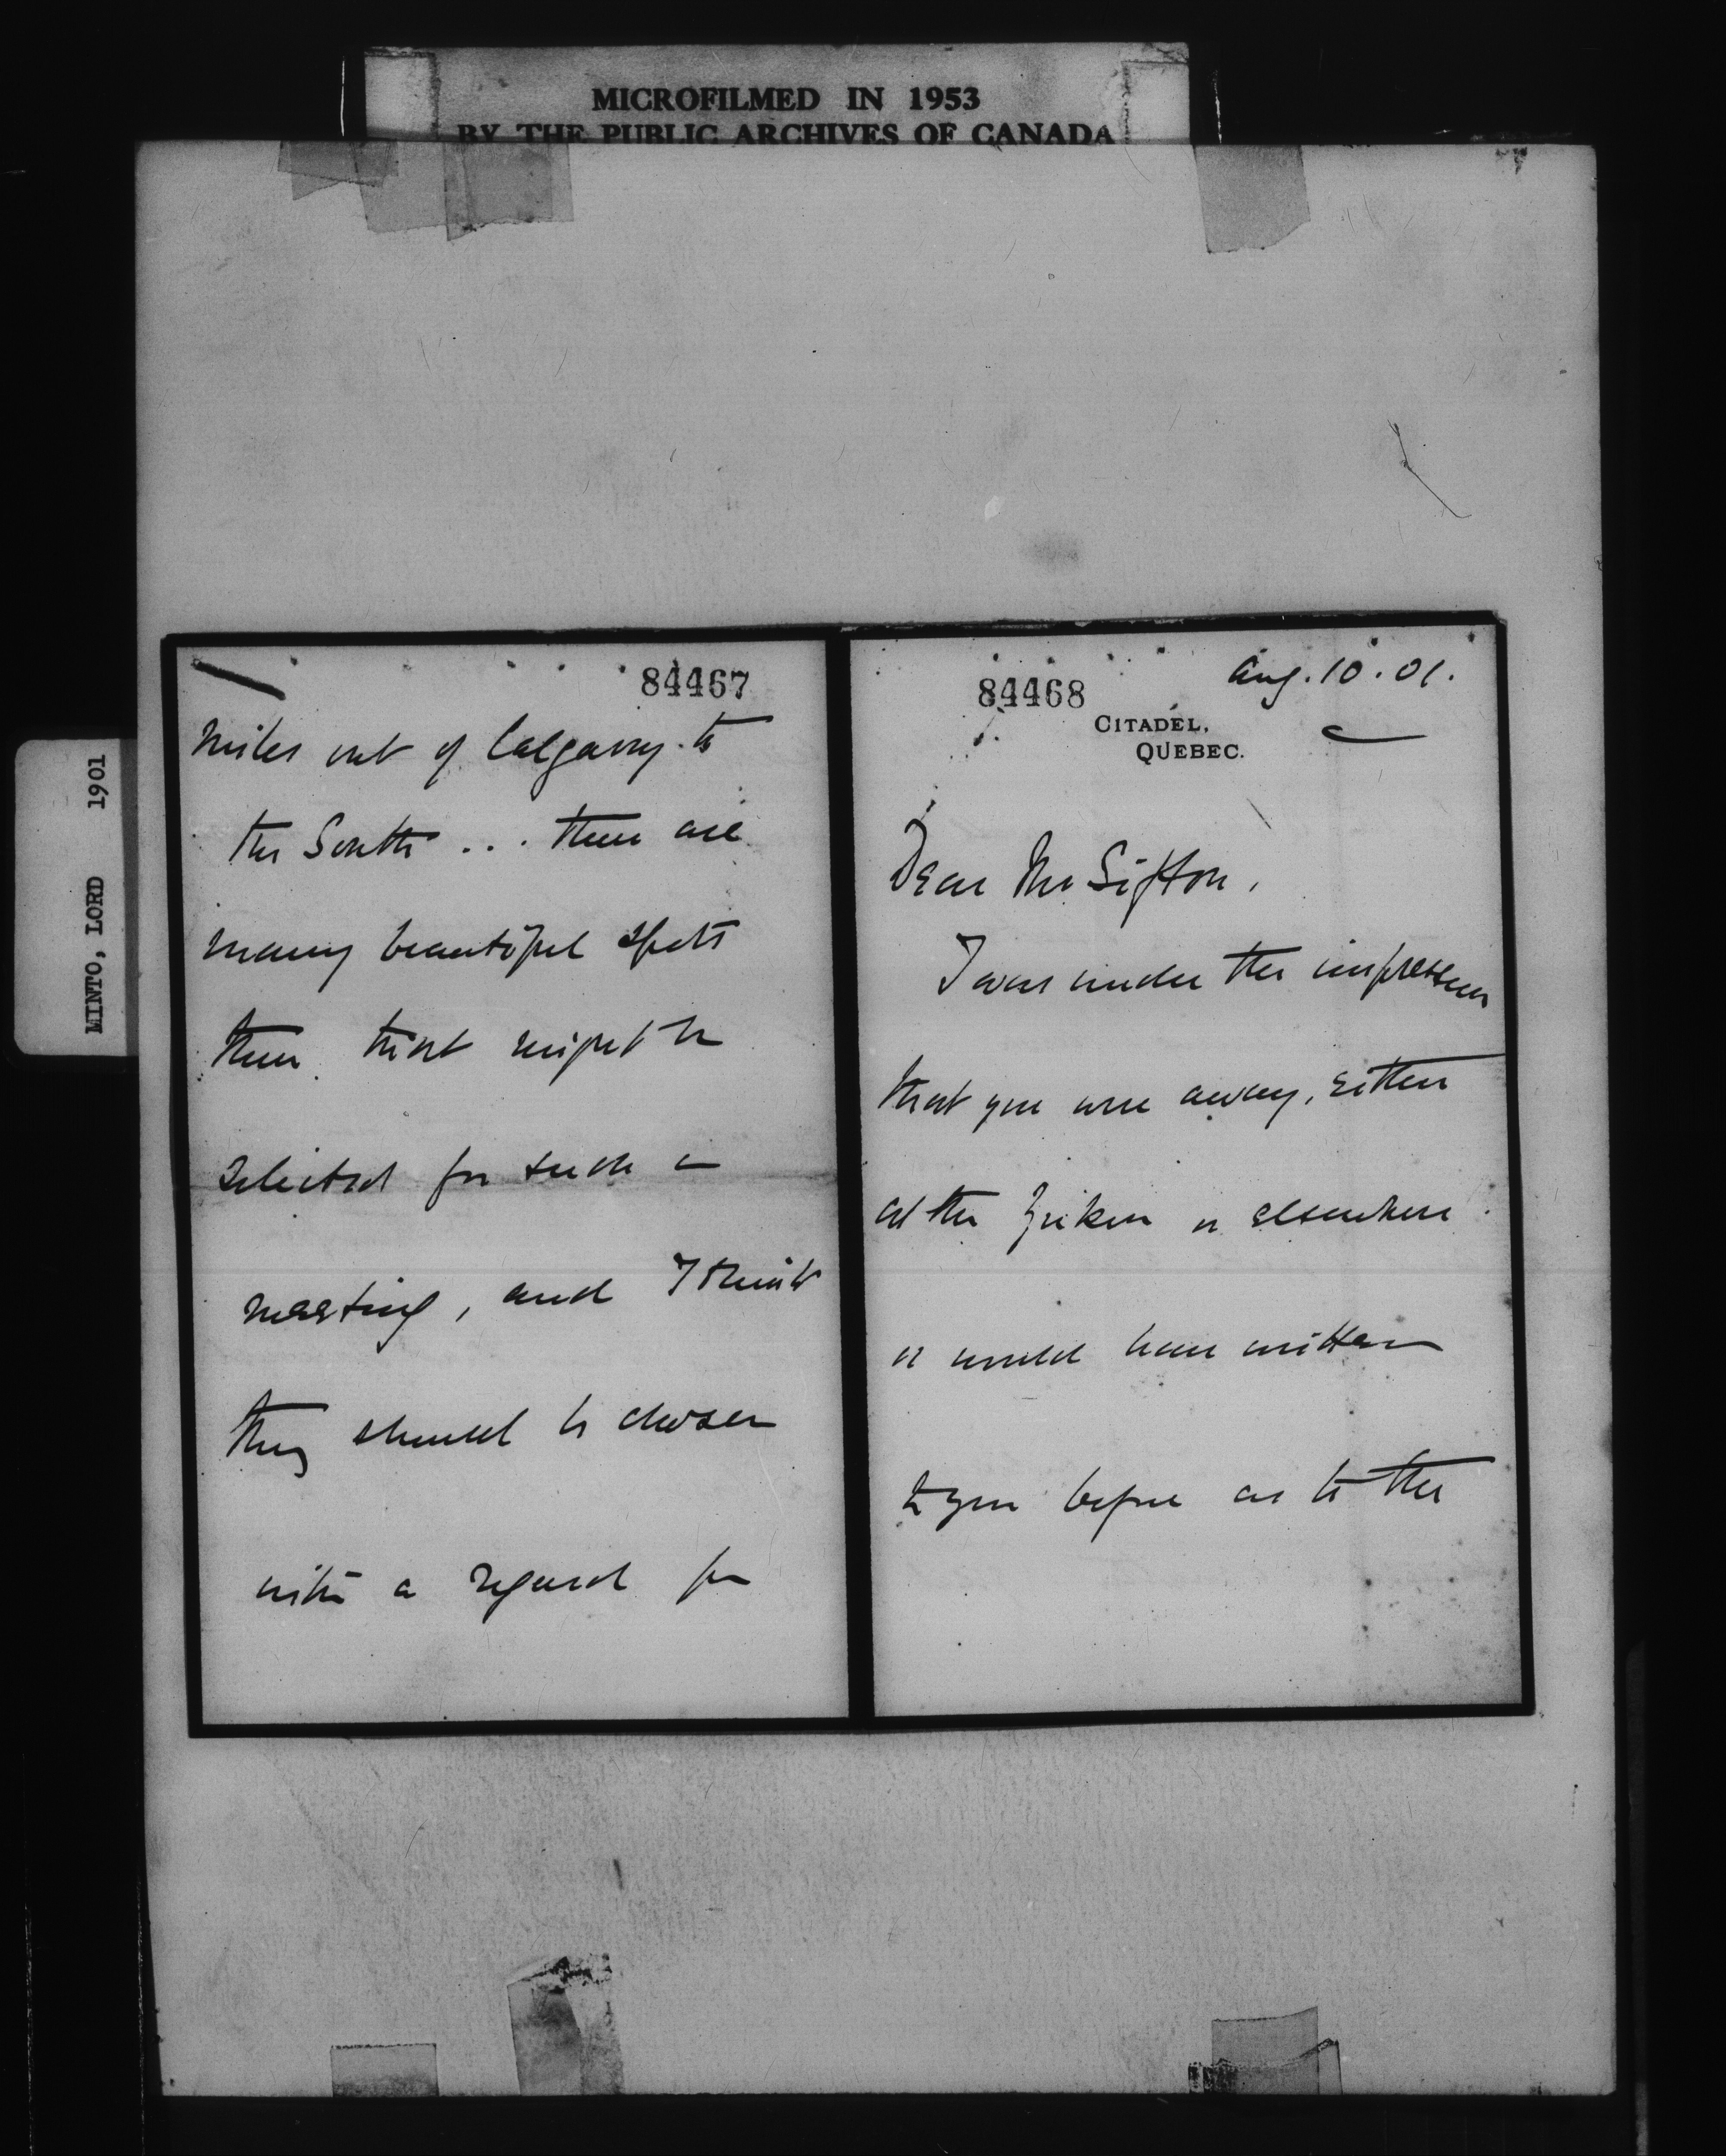 MICROFILMED IN 1953
BY THE PUBLIC ARCHIVES OF CANADA
MINTO, LORD 1901
84467
miles out of Calgary to
the South ... there are
many beautiful spots
there that might be
selected for such a
meeting, and I think
they should be chosen
with a regard for
84468
Aug. 10. 01.
CITADEL,
QUEBEC.
Dear Mr Sifton,
I was under the impression
that you were away, either
at the Yukon or elsewhere
or would have written
to you before as to the